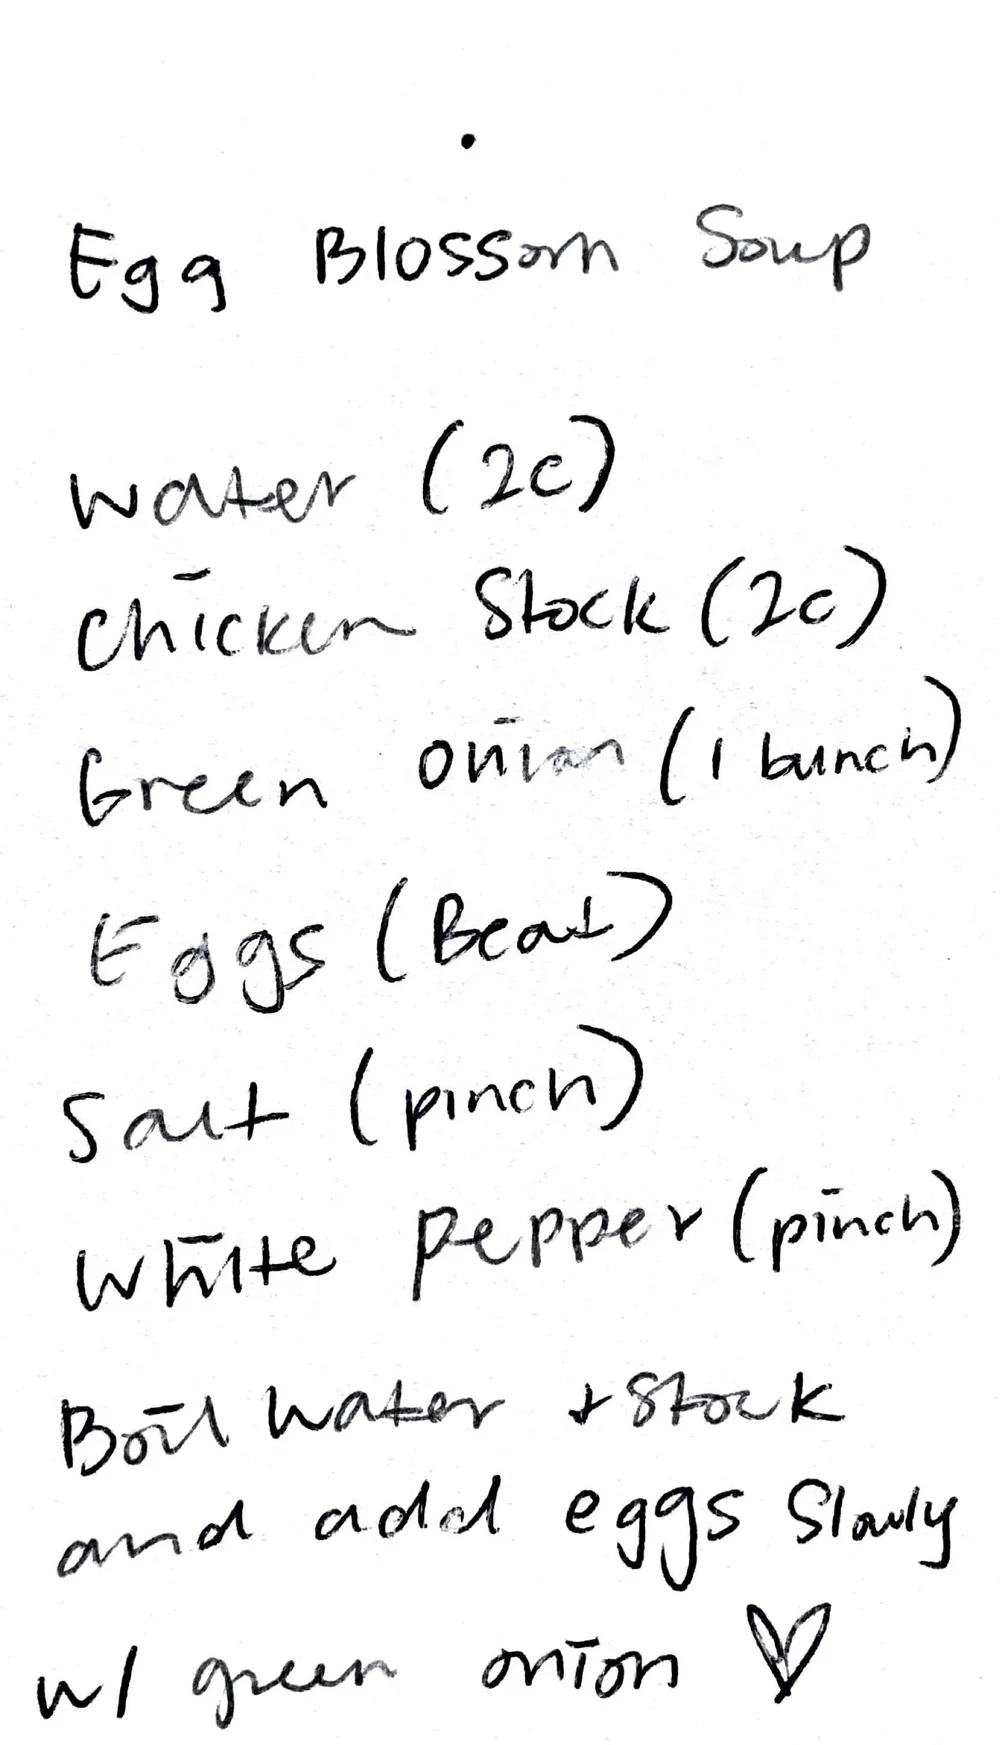 Egg Blossom Soup
water (2c)
chicken Stock (2c)
Green onion (1 bunch)
Eggs (Beat)
Salt (pinch)
white pepper (pinch)
Boil water + Stock
and add eggs Slowly
w/ green onion ♡